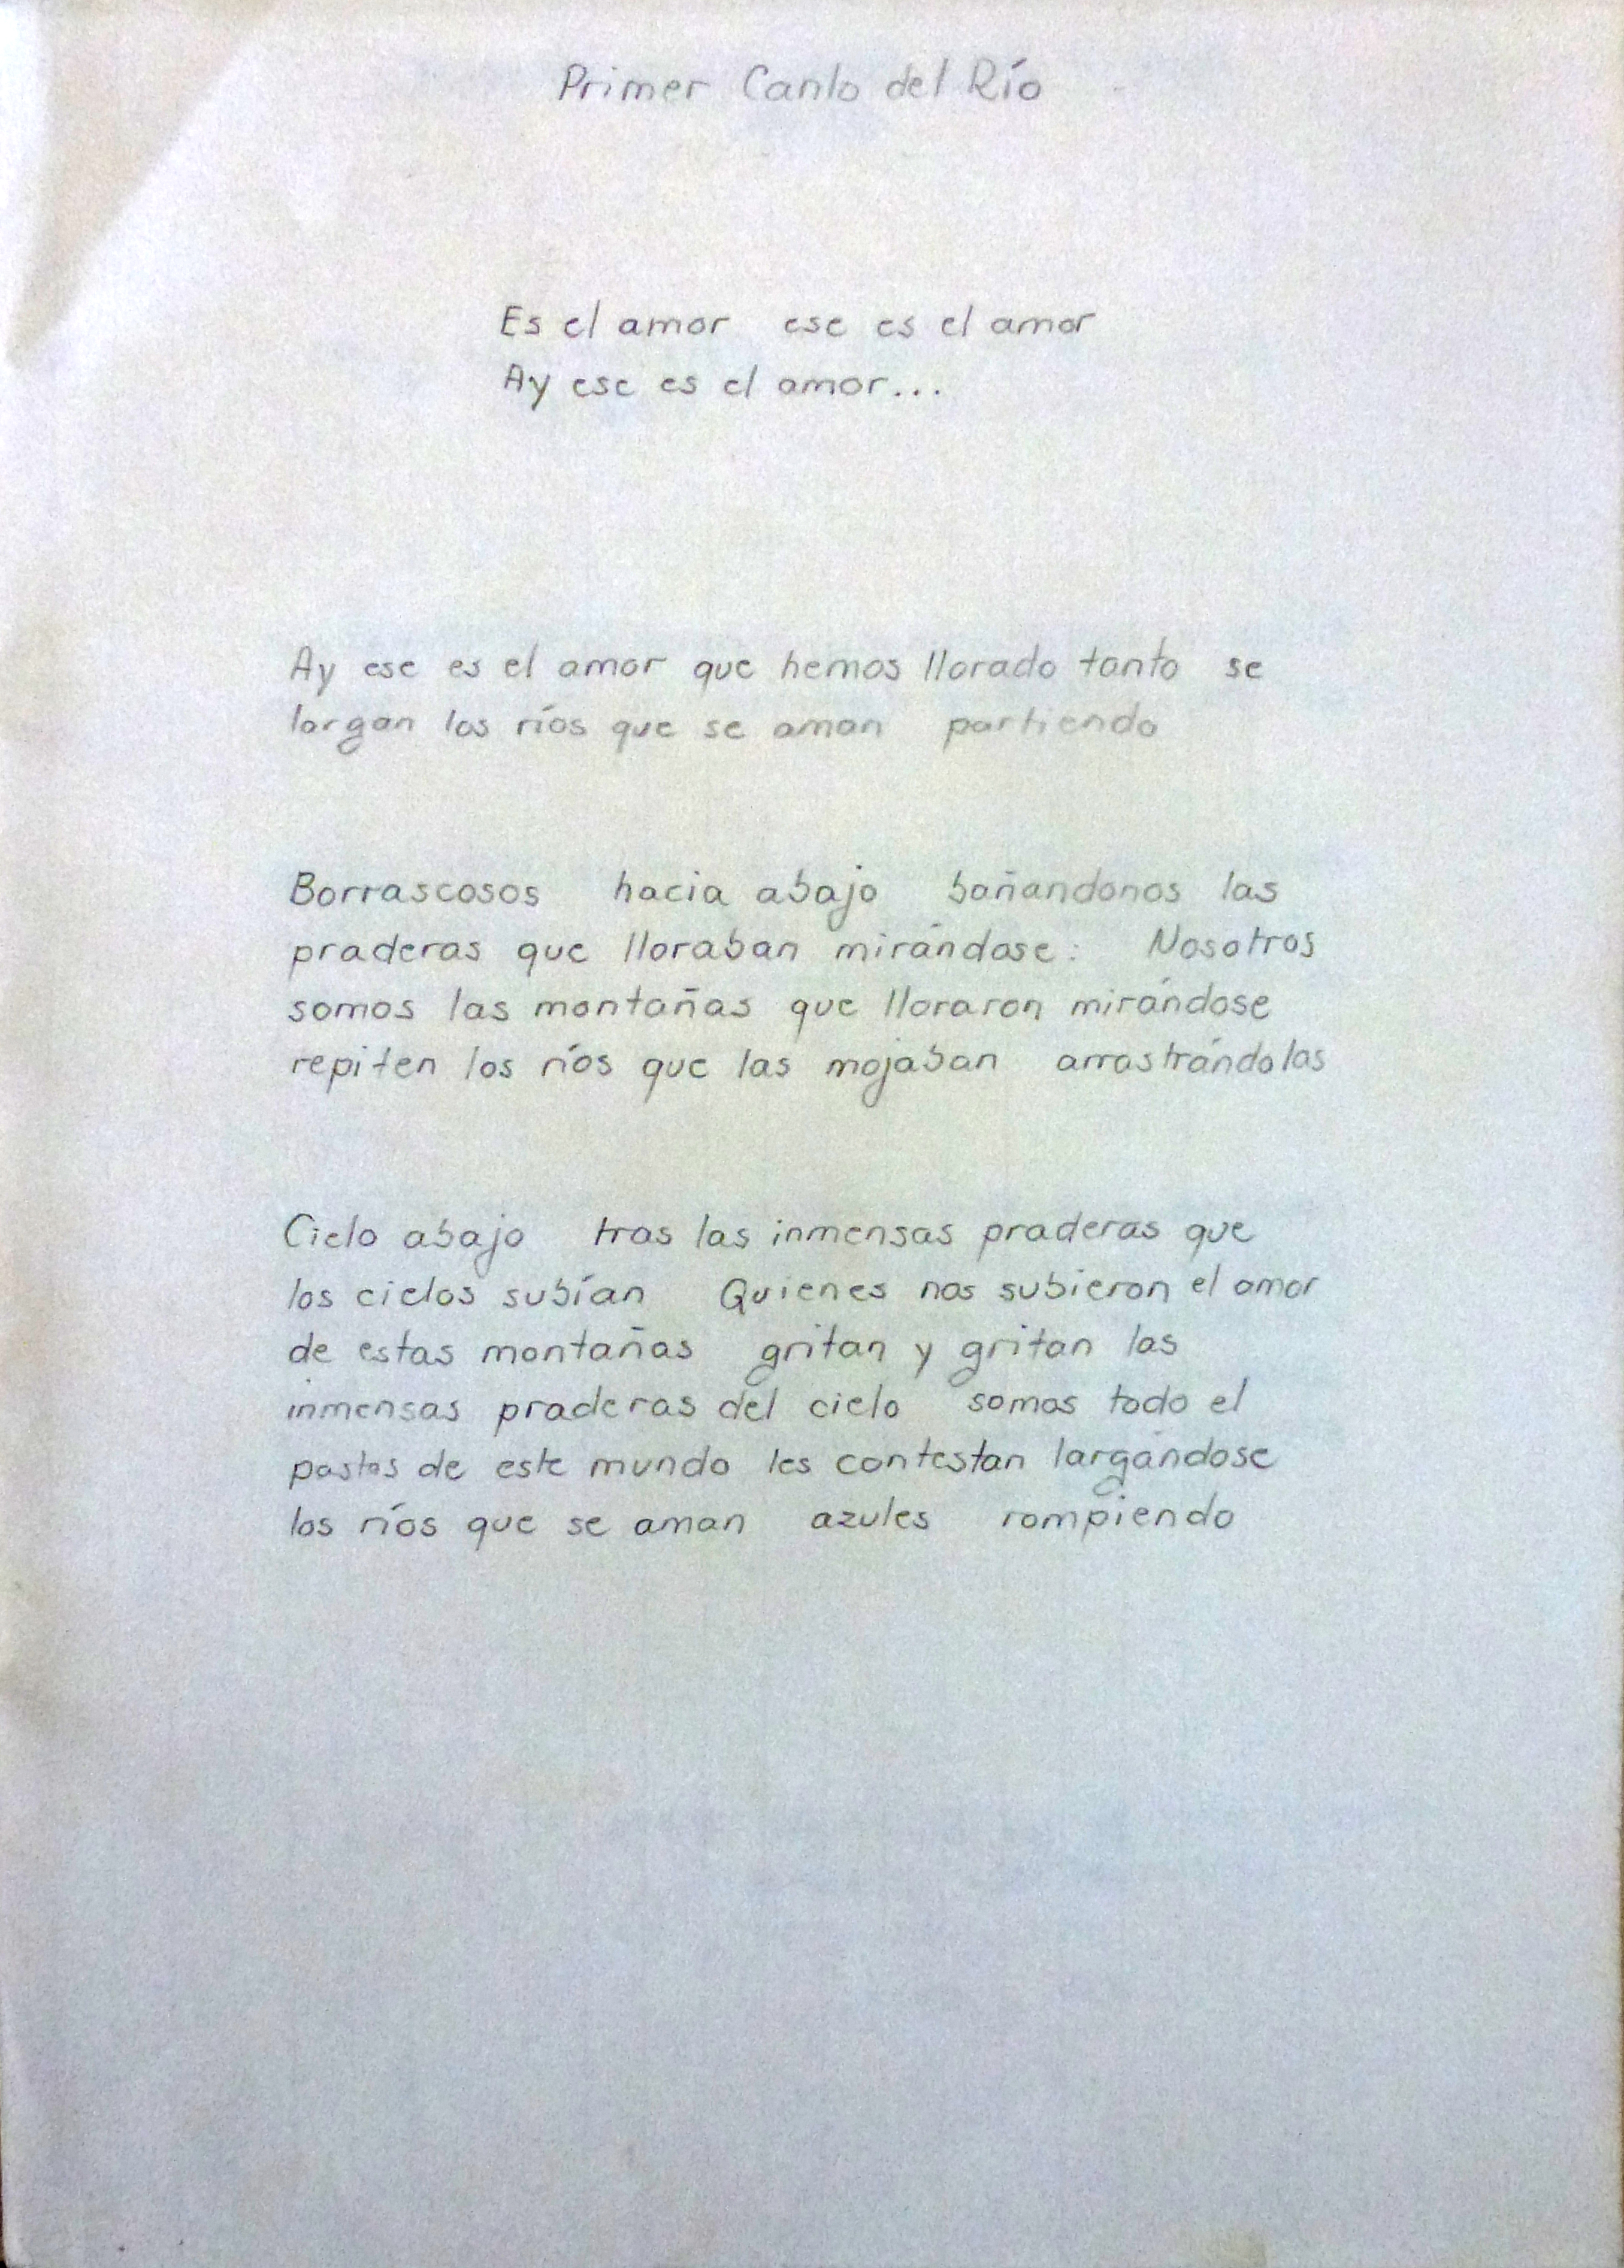 Primer Canto del Río
Es el amor ese es el amor
Ay ese es el amor...
Ay ese es el amor que hemos llorado tanto se
largan los ríos que se aman partiendo
Borrascosos hacia abajo bañandonos las
praderas que lloraban mirándose: Nosotros
somos las montañas que lloraron mirándose
repiten los ríos que las mojaban arrastrándolas
Cielo abajo tras las inmensas praderas que
los cielos subían Quienes nos subieron el amor
de estas montañas gritan y gritan las
inmensas praderas del cielo somos todo el
pastos de este mundo les contestan largándose
los ríos que se aman azules rompiendo